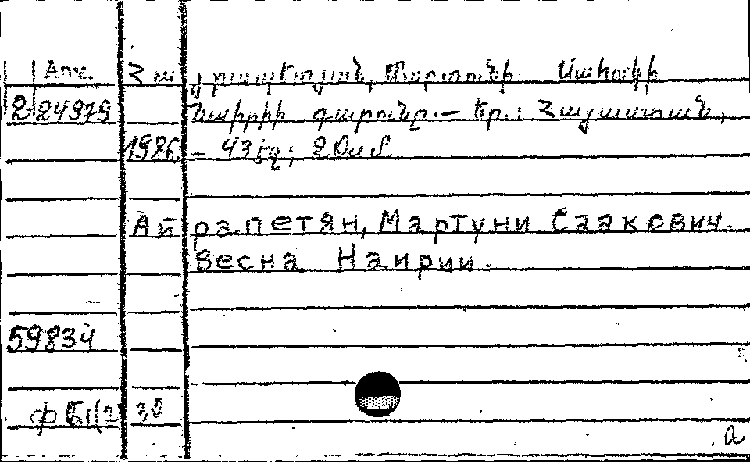 Հայրապետյան, Մարտունի Սահակի
224979 Նաիրիի գարունը.— Եր.: Հայաստան,
1986.— 43 էջ; 20սմ
Айрапетян, Мартуни Саакович.
Весна Наирии.
59834
а